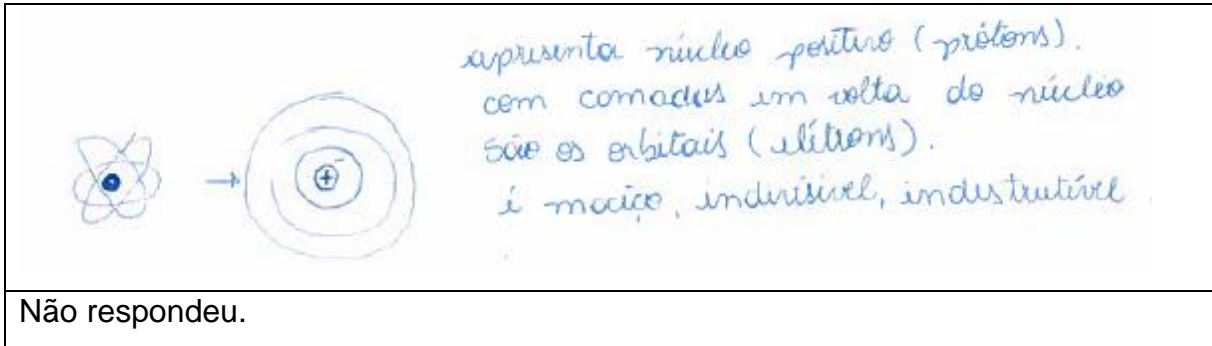 apresenta núcleo positivo (prótons).
com camadas em volta do núcleo
são os orbitais (elétrons).
é maciço, indivisível, indestrutível
+
-
Não respondeu.